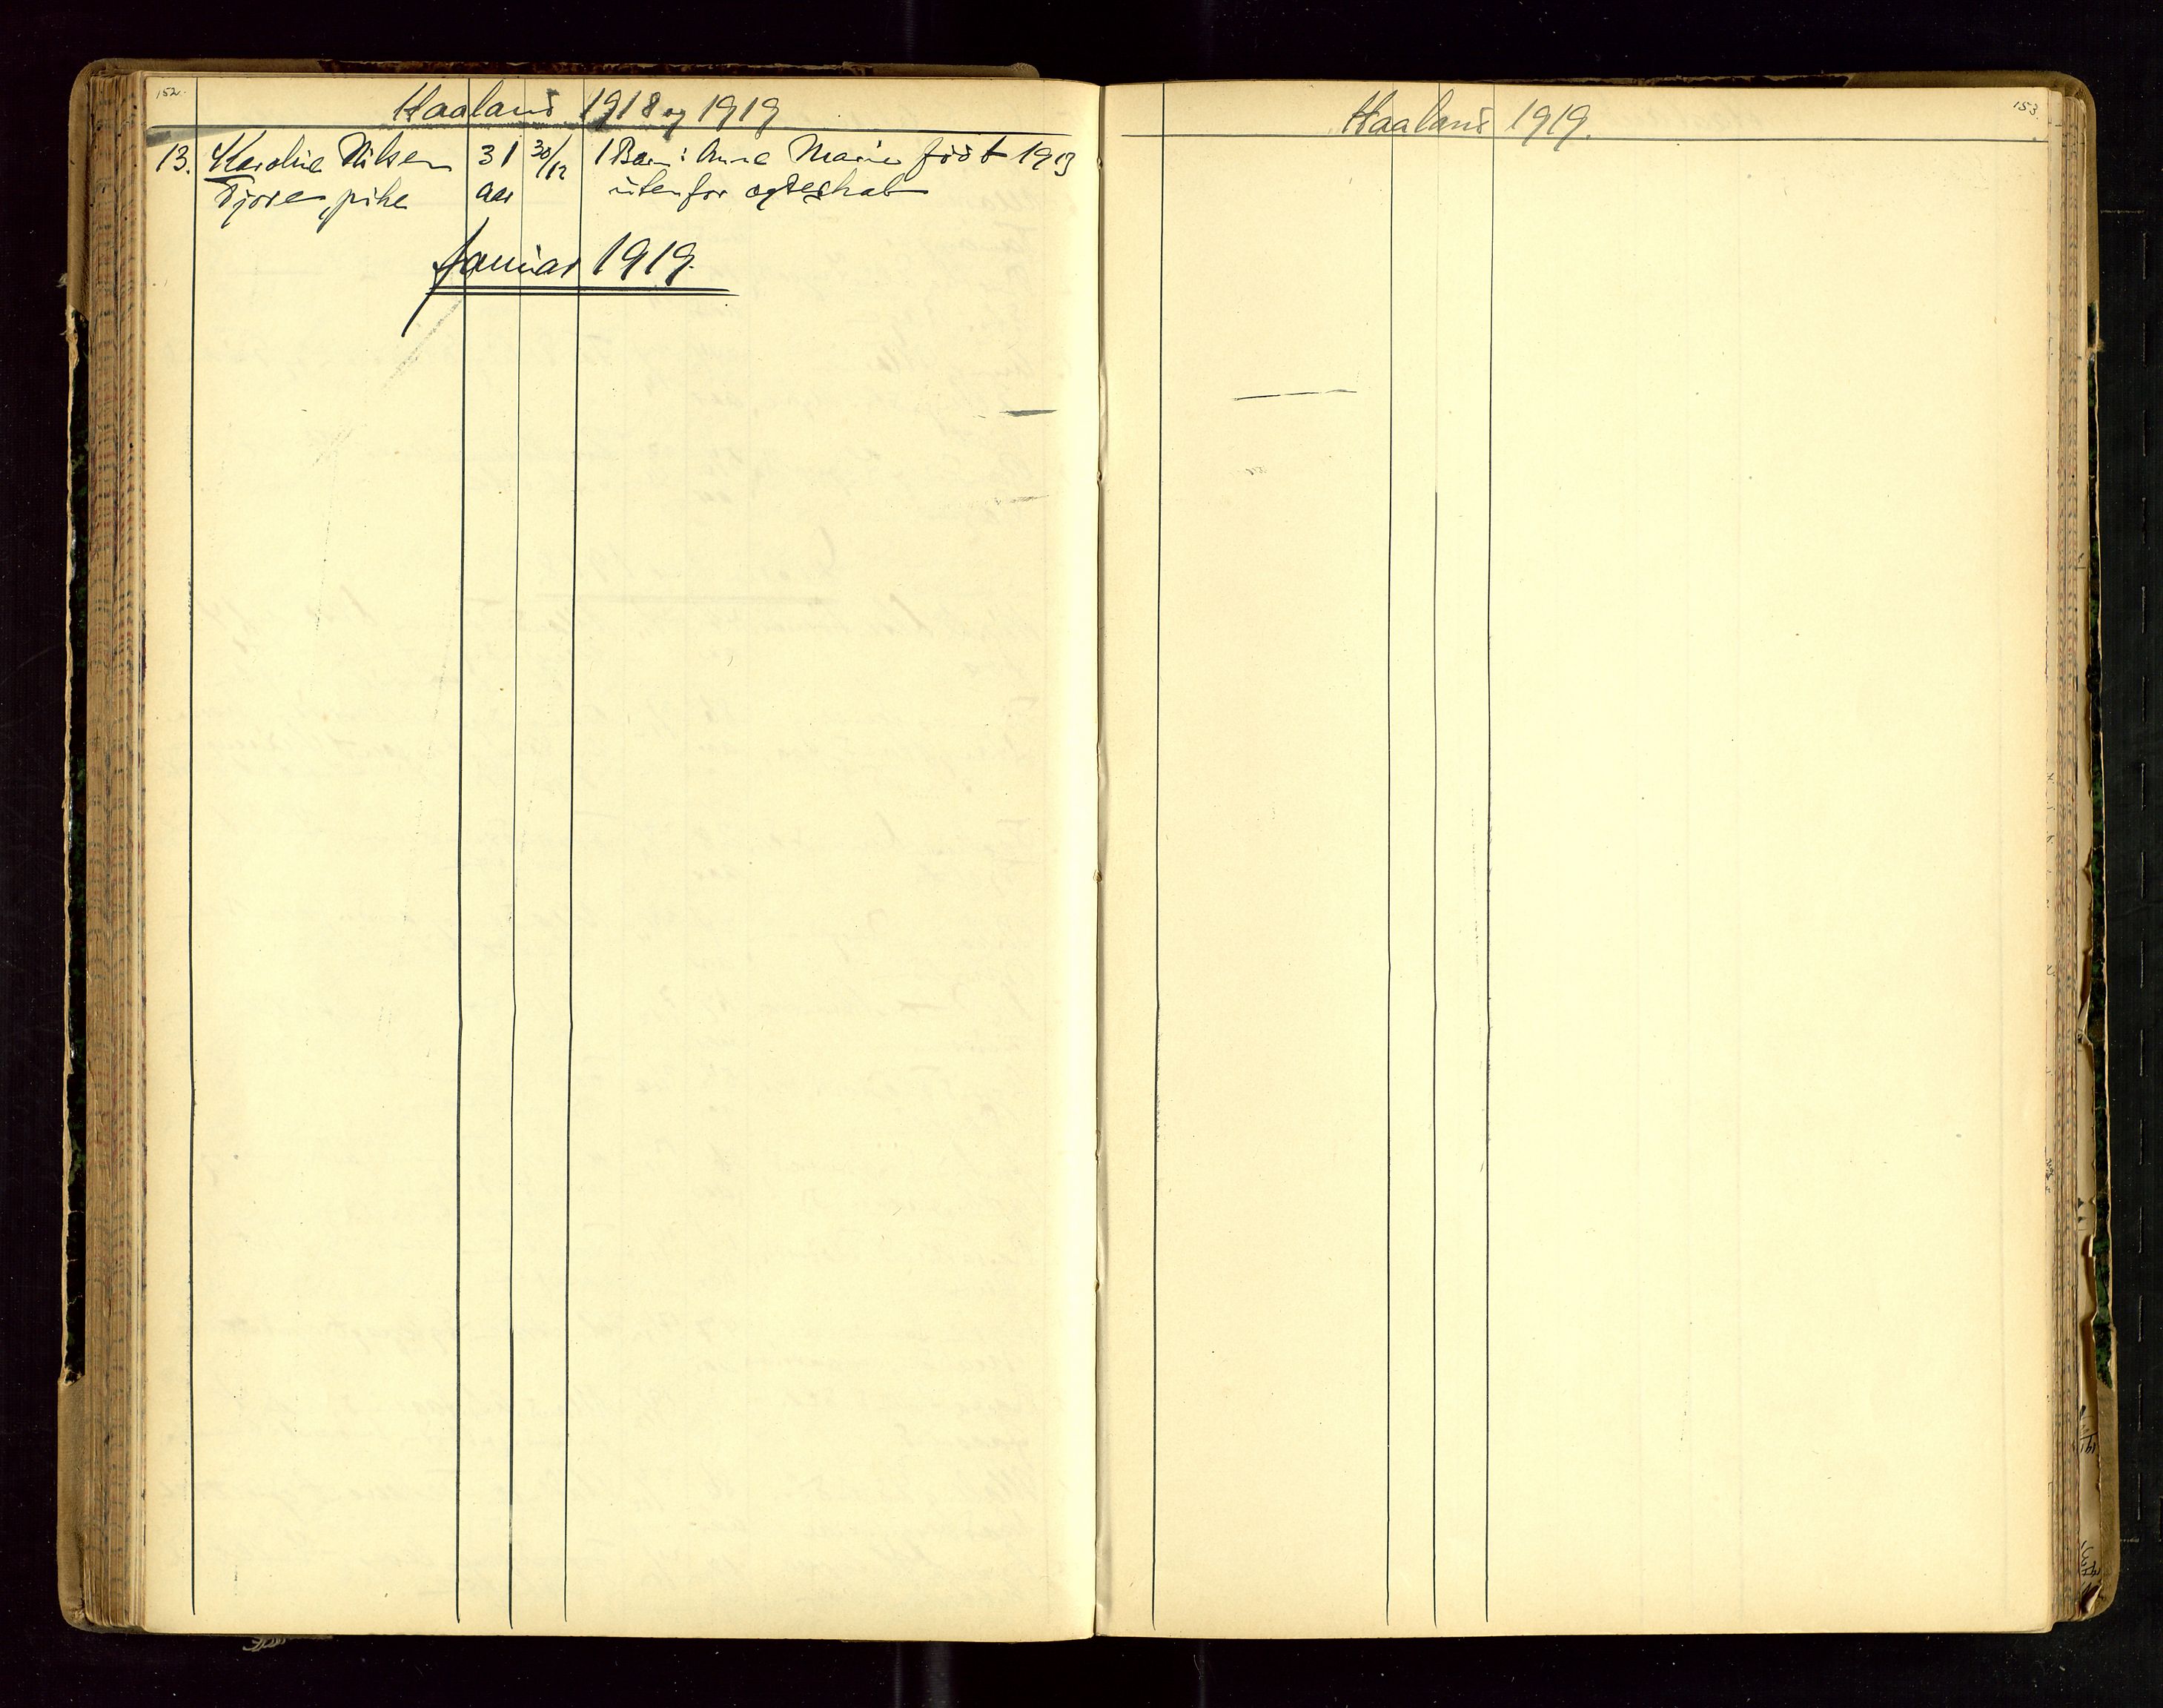 152.
Haaland 1918 og 1919
13. Karoline Nilsen 31 30/12 1 Barn: Anne Marie född 1913
pike aar utenfor egteskab
Januar 1919.
153
Haaland 1919.